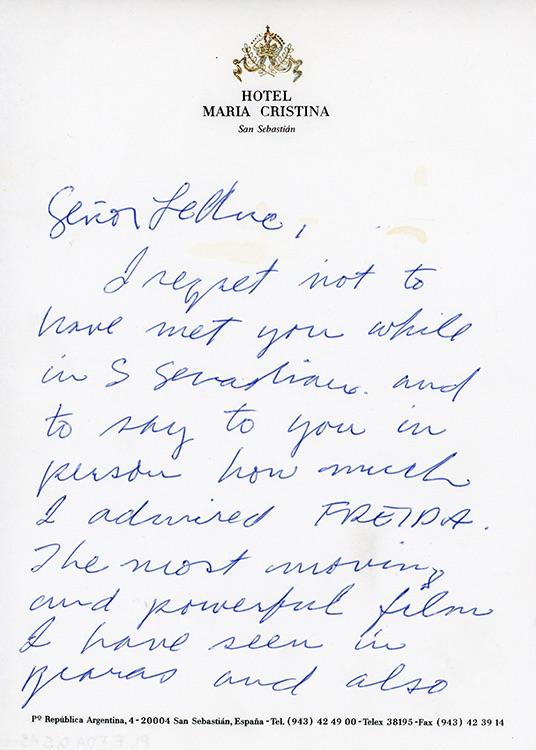 HOTEL
MARIA CRISTINA
San Sebastián
Señor Leduc,
I regret not to
have met you while
in S Sevastian. and
to say to you in
person how much
I admired FREIDA.
The most moving
and powerful film
I have seen in
years and also
Pº República Argentina, 4 - 20004 San Sebastián, España - Tel. (943) 42 49 00 - Telex 38195 - Fax (943) 42 39 14